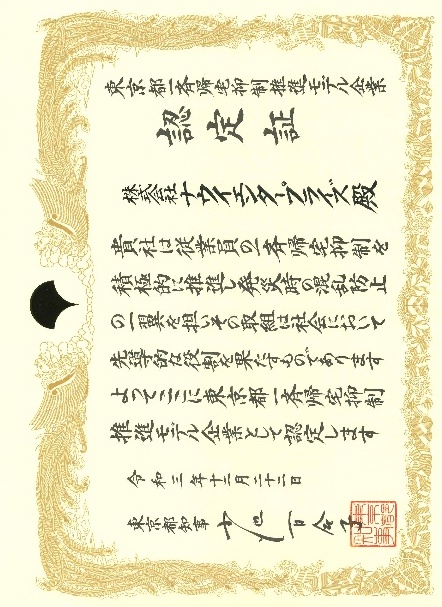 東京都一斉帰宅抑制推進モデル企業
認定証
株式会社ナウイエンタープライズ殿
貴社は従業員の一斉帰宅抑制を
積極的に推進し発災時の混乱防止
の一翼を担いその取組は社会において
先導的な役割を果たすものであります
よってここに東京都一斉帰宅抑制
推進モデル企業として認定します
令和三年十二月二十二日
東京都知事 小池百合子